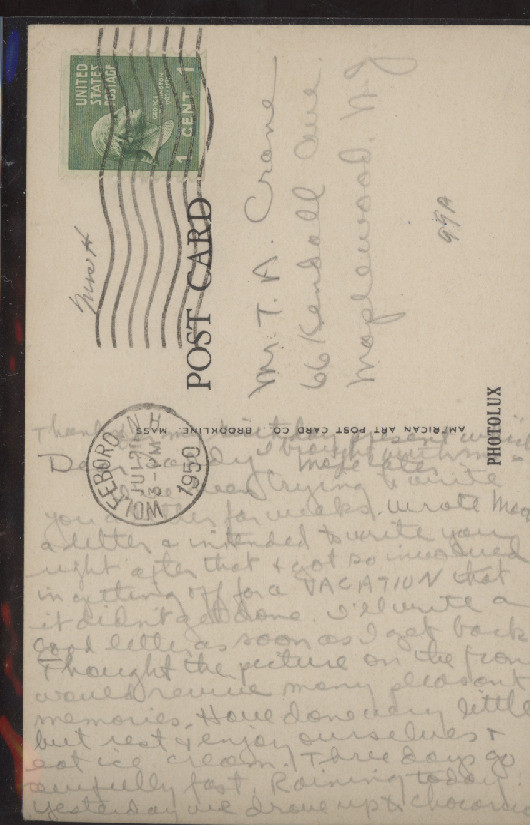 UNITED
STATES
POSTAGE
1 CENT 1
POST CARD
Mr. T. A. Crane
66 Kendall Ave.
Maplewood, N J
99A
PHOTOLUX
AMERICAN ART POST CARD CO. BROOKLINE, MASS.
WOLFEBORO N H
JUL
3-PM
1950
Thanks birthday present which
I brought with me
more later
Dear
been trying to write
you a letter for weeks. Wrote
a letter & intended to write you
right after that & got so involved
in getting off for a VACATION that
it didn't get done. I'll write a
good letter as soon as I get back
Thought the picture on the front
would revive many pleasant
memories. Have done very little
but rest & enjoy ourselves &
eat ice cream. Three days go
awfully fast. Raining today
yesterday we drove up to Chocorua